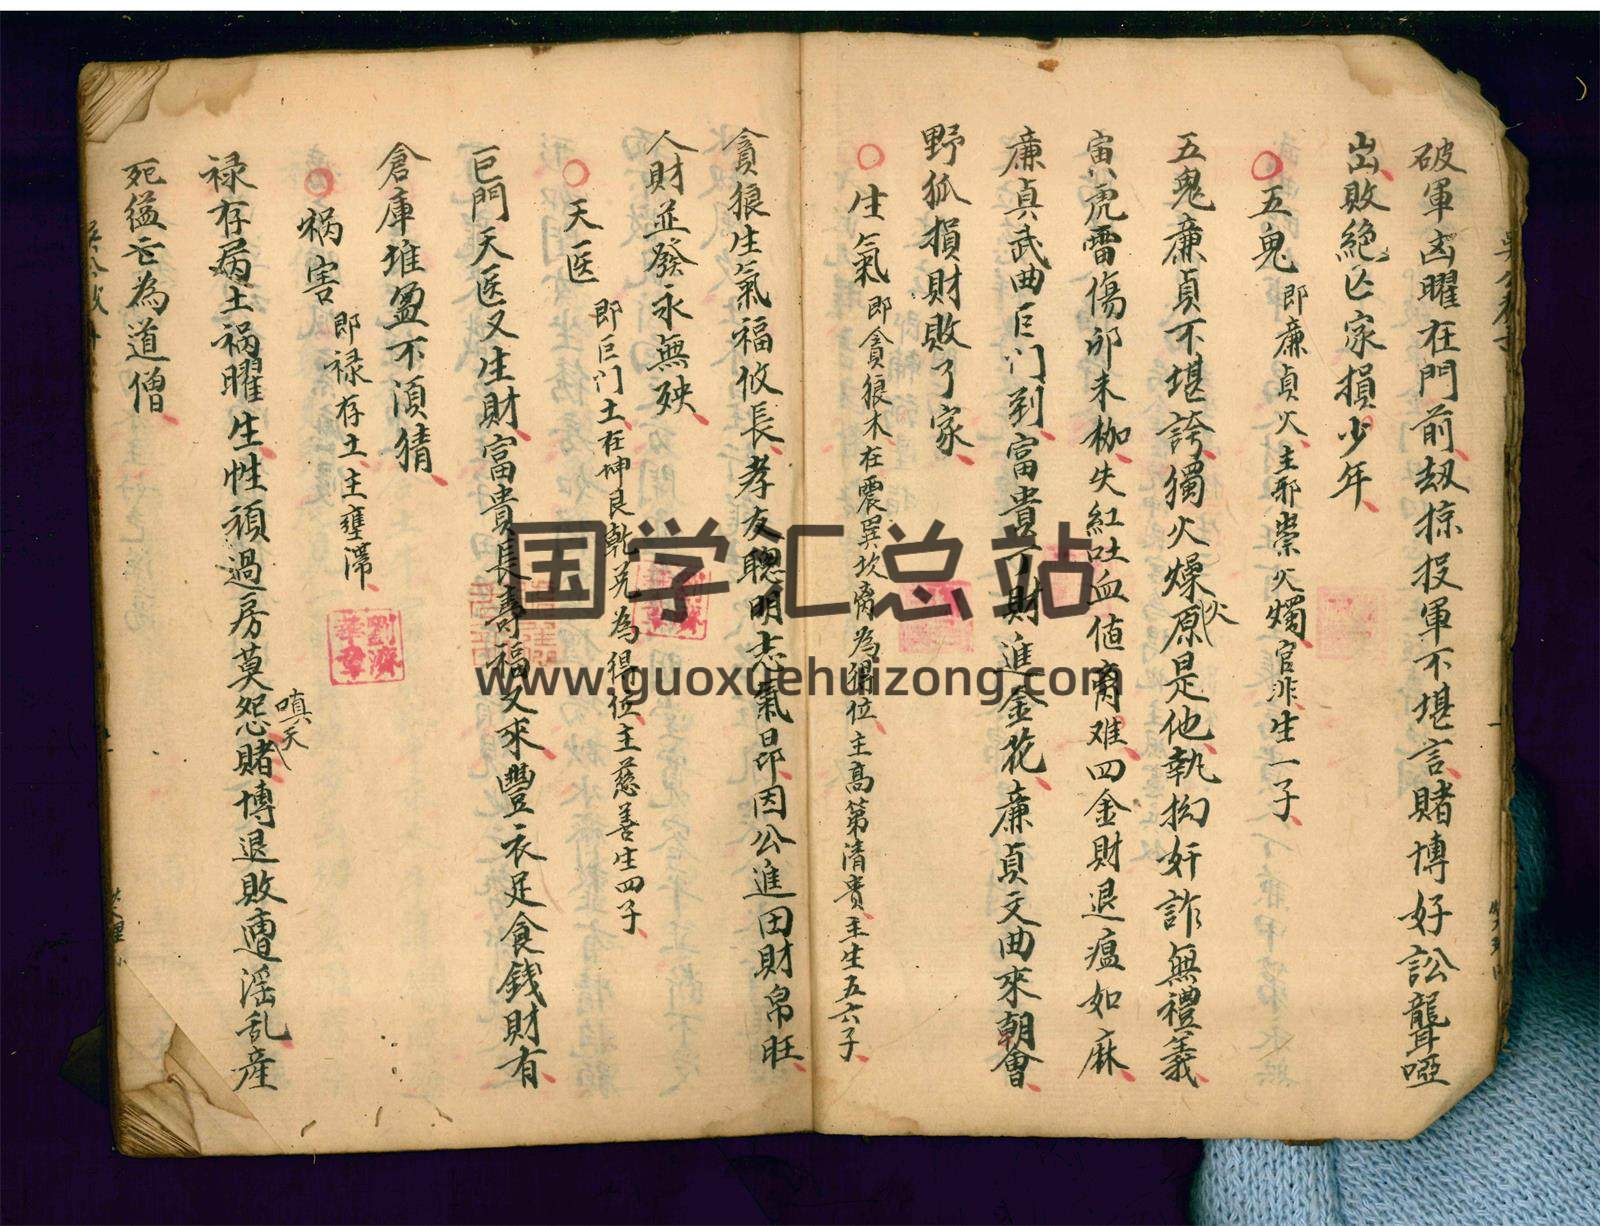 破軍凶曜在門前劫掠投軍不堪言賭博好訟聾啞
出敗絕亡家損少年
五鬼 即廉貞火主邪祟火燭官非生一子
五鬼廉貞不堪誇獨火燥原火是他執拗奸詐無禮義
寅虎雷傷卯未枷失紅吐血值离难四金財退瘟如麻
廉貞武曲巨门到富貴丁財進金花廉貞文曲來朝會
野狐損財敗了家
生氣 即貪狼木在震巽坎离為得位主高第清貴主生五六子
貪狼生氣福攸長孝友聰明志氣昂因公進田財帛旺
人財並發永無殃
天医 即巨门土在坤艮乾兑為得位主慈善生四子
巨門天医又生財富貴長壽福又來豐衣足食钱財有
倉庫堆盈不須猜
祸害 即禄存土主壅滯
禄存病土祸曜生性頑過房莫怨嗔天賭博退敗遭淫乱產
死縊亡為道僧
劉濟
章
国学汇总站
www.guoxuehuizong.com